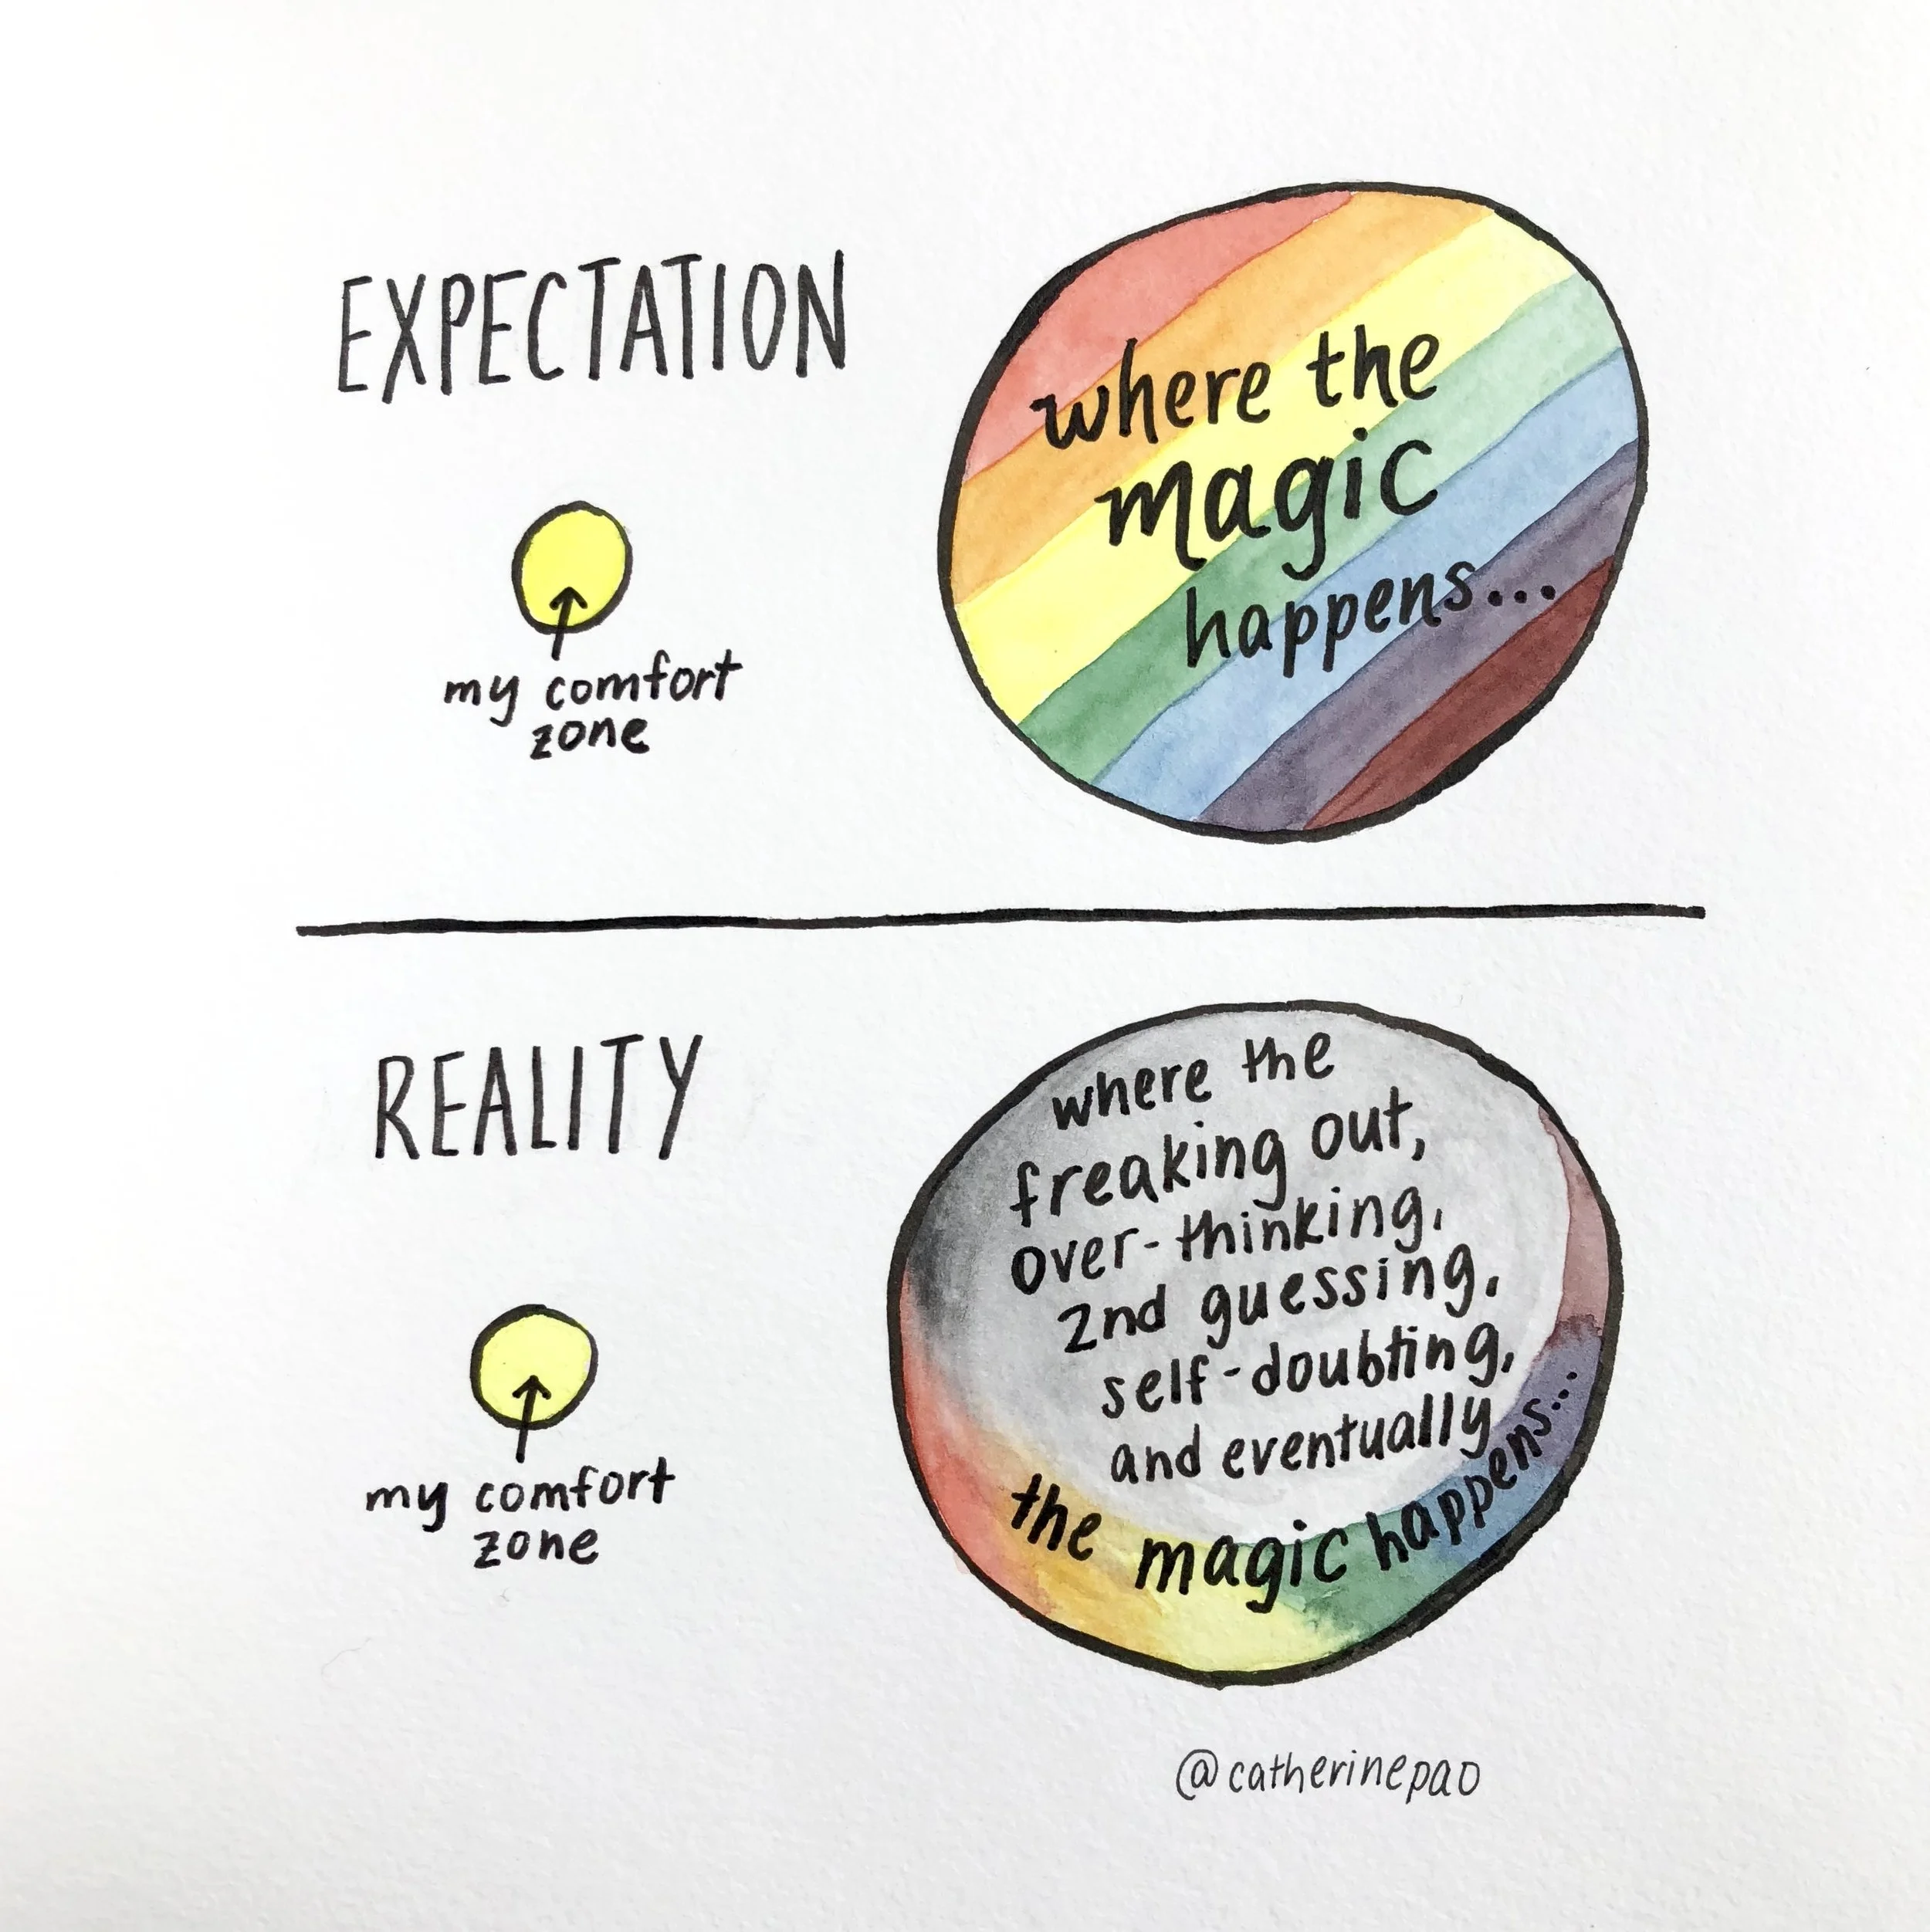 EXPECTATION
where the
magic
happens...
my comfort
zone
REALITY
where the
freaking out,
over-thinking,
2nd guessing,
self-doubting,
and eventually
the magic happens...
my comfort
zone
@catherinepao